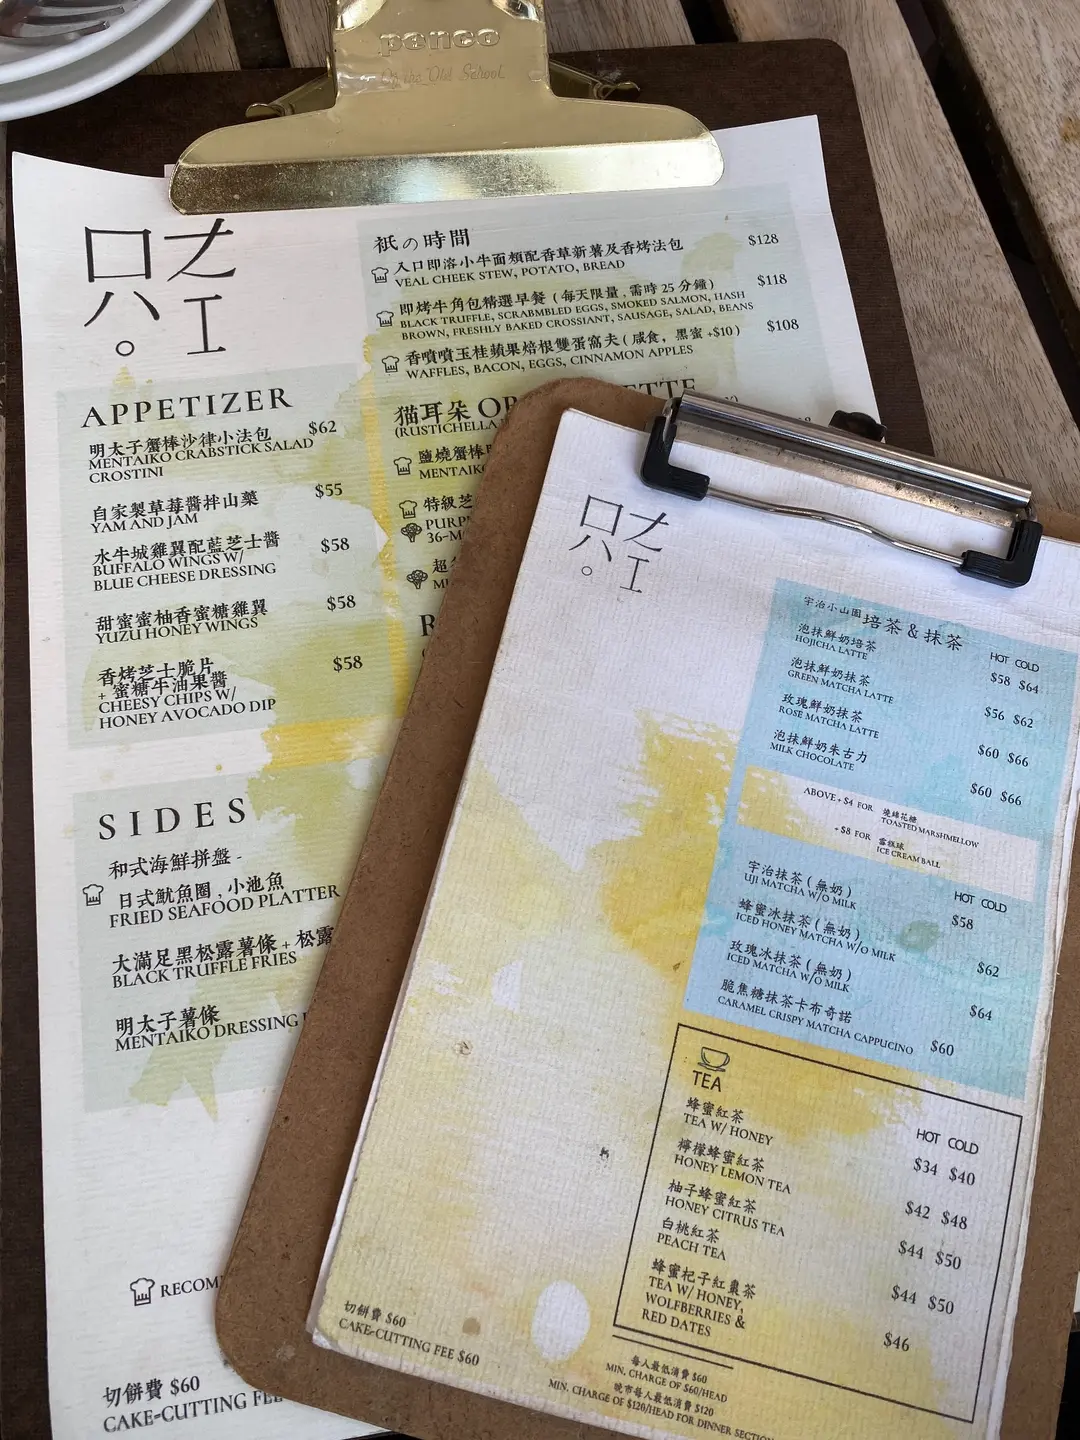 penco
Of the Old School.
只才
。工
祇の時間
入口即溶小牛面頰配香草新薯及香烤法包 $128
VEAL CHEEK STEW, POTATO, BREAD
即烤牛角包精選早餐 ( 每天限量 , 需時 25 分鐘 ) $118
BLACK TRUFFLE, SCRABMBLED EGGS, SMOKED SALMON, HASH
BROWN, FRESHLY BAKED CROSSIANT, SAUSAGE, SALAD, BEANS
香噴噴玉桂蘋果焙根雙蛋窩夫 ( 咸食, 黑蜜 +$10 ) $108
WAFFLES, BACON, EGGS, CINNAMON APPLES
APPETIZER
明太子蟹棒沙律小法包 $62
MENTAIKO CRABSTICK SALAD
CROSTINI
自家製草莓醬拌山藥 $55
YAM AND JAM
水牛城雞翼配藍芝士醬 $58
BUFFALO WINGS W/
BLUE CHEESE DRESSING
甜蜜蜜柚香蜜糖雞翼 $58
YUZU HONEY WINGS
香烤芝士脆片 $58
+ 蜜糖牛油果醬
CHEESY CHIPS W/
HONEY AVOCADO DIP
猫耳朵 OR ETTE
(RUSTICHELLA
鹽燒蟹棒
MENTAIK
特級芝
PURP
36-M
超
MU
R
SIDES
和式海鮮拼盤 -
日式魷魚圈 , 小池魚
FRIED SEAFOOD PLATTER
大滿足黑松露薯條 + 松露
BLACK TRUFFLE FRIES
明太子薯條
MENTAIKO DRESSING
RECOM
切餅費 $60
CAKE-CUTTING FEE
只才
。工
宇治小山園 培茶 & 抹茶
HOT COLD
泡抹鮮奶培茶 $58 $64
HOJICHA LATTE
泡抹鮮奶抹茶 $56 $62
GREEN MATCHA LATTE
玫瑰鮮奶抹茶 $60 $66
ROSE MATCHA LATTE
泡抹鮮奶朱古力 $60 $66
MILK CHOCOLATE
ABOVE + $4 FOR 燒綿花糖
TOASTED MARSHMELLOW
+ $8 FOR 雪糕球
ICE CREAM BALL
HOT COLD
宇治抹茶 ( 無奶 ) $58
UJI MATCHA W/O MILK
蜂蜜冰抹茶 ( 無奶 ) $62
ICED HONEY MATCHA W/O MILK
玫瑰冰抹茶 ( 無奶 ) $64
ICED MATCHA W/O MILK
脆焦糖抹茶卡布奇諾 $60
CARAMEL CRISPY MATCHA CAPPUCINO
TEA
HOT COLD
蜂蜜紅茶 $34 $40
TEA W/ HONEY
檸檬蜂蜜紅茶 $42 $48
HONEY LEMON TEA
柚子蜂蜜紅茶 $44 $50
HONEY CITRUS TEA
白桃紅茶 $44 $50
PEACH TEA
蜂蜜杞子紅棗茶 $46
TEA W/ HONEY,
WOLFBERRIES &
RED DATES
切餅費 $60
CAKE-CUTTING FEE $60
每人最低消費 $60
MIN. CHARGE OF $60/HEAD
晚市每人最低消費 $120
MIN. CHARGE OF $120/HEAD FOR DINNER SECTION